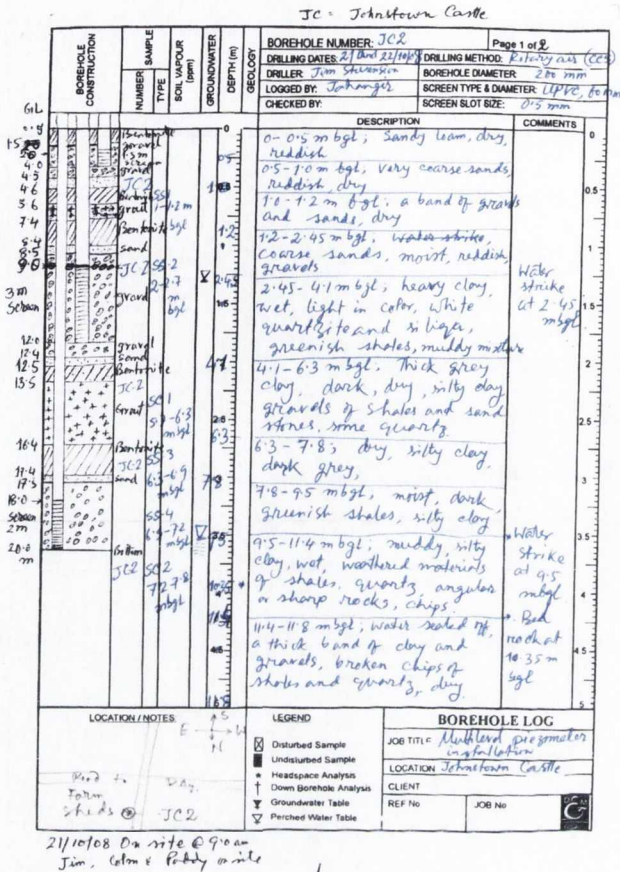 JC = Johnstown Castle
BOREHOLE NUMBER: JC2
Page 1 of 2
DRILLING DATES: 21 and 22/10/08
DRILLING METHOD: Rotary air
DRILLER: Jim Stevenson
BOREHOLE DIAMETER: 200 mm
LOGGED BY: Jahangir
SCREEN TYPE & DIAMETER: UPVC, 60 mm
CHECKED BY:
SCREEN SLOT SIZE: 0.5 mm
BOREHOLE CONSTRUCTION
SAMPLE
NUMBER
TYPE
SOIL VAPOUR (ppm)
GROUNDWATER
DEPTH (m)
GEOLOGY
DESCRIPTION
COMMENTS
0-0.5 m bgl; Sandy loam, dry,
reddish
0.5-1.0 m bgl, very coarse sands,
reddish, dry
1.0-1.2 m bgl; a band of gravels
and sands, dry
1.2-2.45 m bgl; water strike,
coarse sands, moist, reddish,
gravels
2.45-4.1 m bgl; heavy clay,
wet, light in color, white
quartzite and
greenish shales, muddy mixture
4.1-6.3 m bgl, thick grey
clay, dark, dry, silty clay
gravels of shales and sand
stones, some quartz.
6.3-7.8; dry, silty clay,
dark grey,
7.8-9.5 mbgl, moist, dark,
greenish shales, silty clay
9.5-11.4 mbgl; muddy, silty
clay, wet, weathered materials
of shales, quartz, angular
or sharp rocks, chips.
11.4-11.8 mbgl; water sealed off,
a thick band of clay and
gravels, broken chips of
shales and quartz, dry.
Water
strike
at 2.45
mbgl
Water
strike
at 9.5
mbgl
Bed
rock at
10.35 m
bgl
0
0.5
1
1.5
2
2.5
3
3.5
4
4.5
5
G.L
4.0
4.5
4.6
5.6
7.4
8.4
8.5
3 m
Screen
12.0
12.4
12.5
13.5
16.4
17.4
17.5
18.0
Screen
2 m
20.0
m
Bentonite
gravel
1.5 m
screen
gravel
JC2
SS-1
grout 1-1.2 m
Bentonite bgl
sand
JC2 SS-2
2-2.7
gravel m
bgl
gravel
sand
Bentonite
JC-2
Grout SC 1
5.1-6.3
mbgl
Bentonite
JC-2 SS 3
sand 6.3-6.9
mbgl
SS-4
6.9-7.2
mbgl
bottom
JC2 SC2
7.2-7.8
mbgl
0
0.5
1.2
2.45
4.1
6.3
7.8
LOCATION / NOTES
S
E W
N
Road to
Farm
sheds
JC2
LEGEND
Disturbed Sample
Undisturbed Sample
Headspace Analysis
Down Borehole Analysis
Groundwater Table
Perched Water Table
BOREHOLE LOG
JOB TITLE Multilevel piezometer
installation
LOCATION Johnstown Castle
CLIENT
REF No
JOB No
21/10/08 On site @ 9.0 am
Jim, Colm & Paddy on site